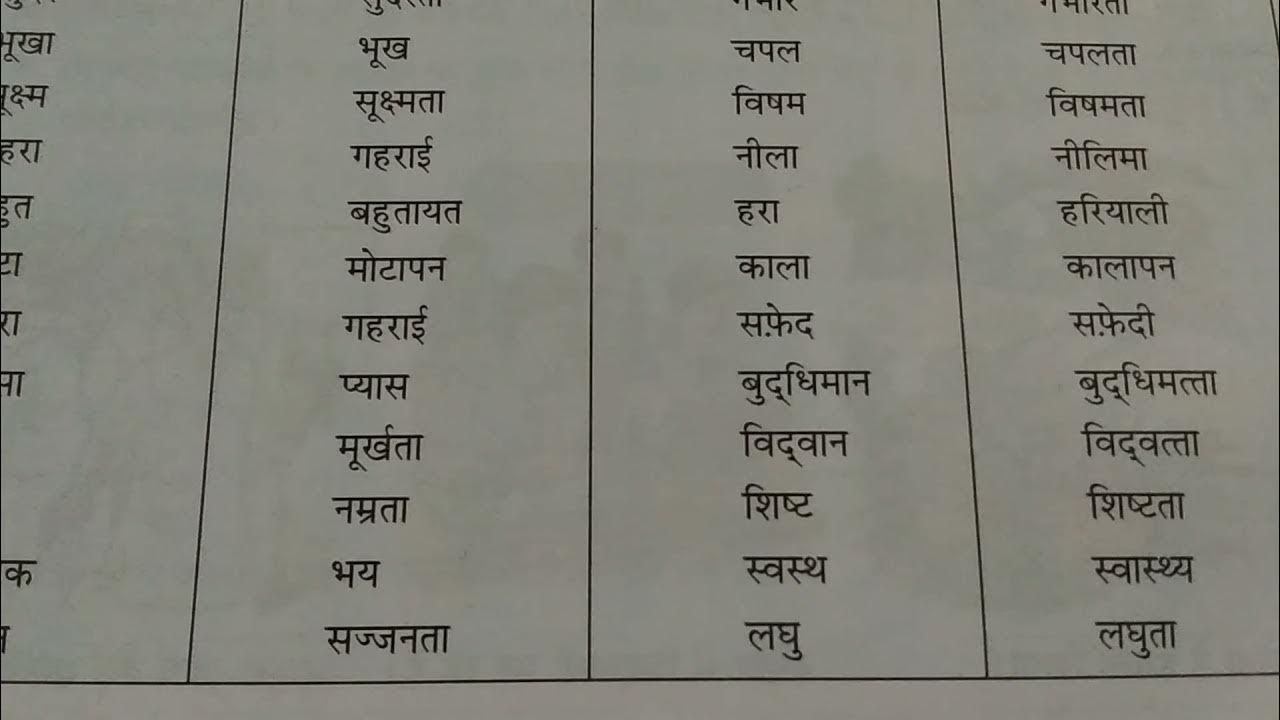 भूखा भूख चपल चपलता
सूक्ष्मता विषम विषमता
गहराई नीला नीलिमा
बहुतायत हरा हरियाली
मोटापन काला कालापन
गहराई सफ़ेद सफ़ेदी
प्यास बुद्धिमान बुद्धिमत्ता
मूर्खता विद्वान विद्वत्ता
नम्रता शिष्ट शिष्टता
भय स्वस्थ स्वास्थ्य
सज्जनता लघु लघुता